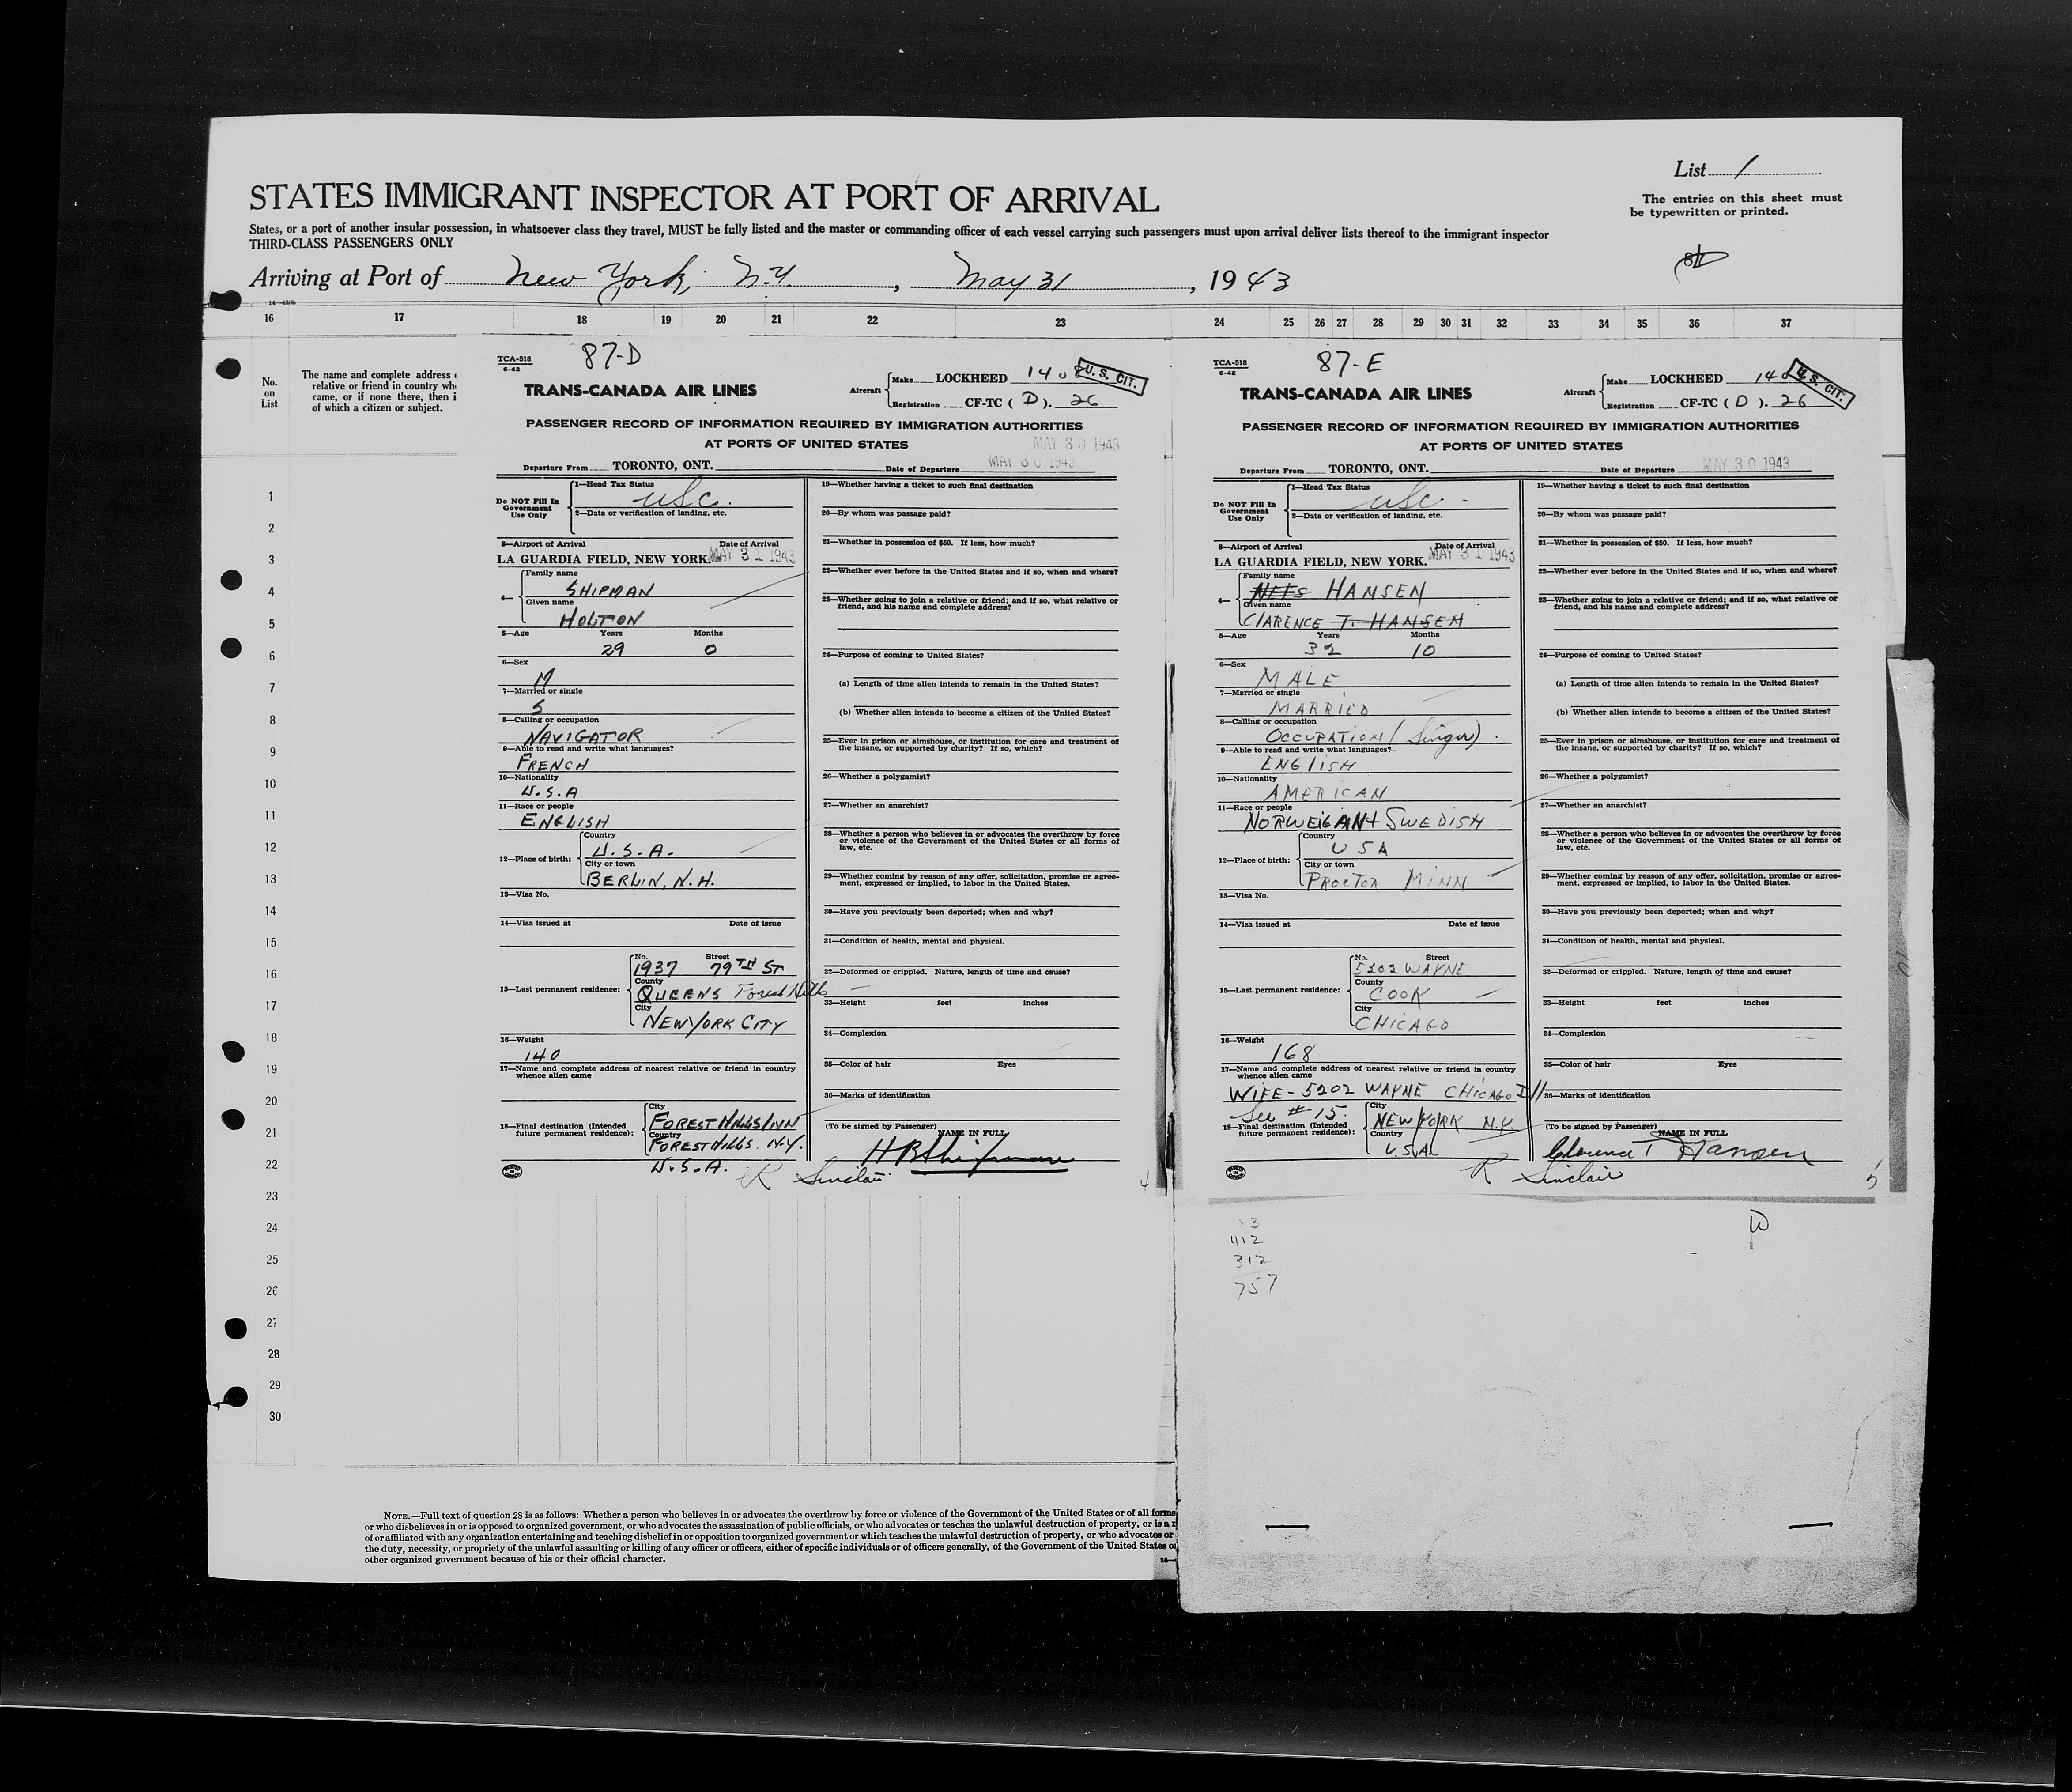 List 1
STATES IMMIGRANT INSPECTOR AT PORT OF ARRIVAL
The entries on this sheet must
be typewritten or printed.
States, or a port of another insular possession, in whatsoever class they travel, MUST be fully listed and the master or commanding officer of each vessel carrying such passengers must upon arrival deliver lists thereof to the immigrant inspector
THIRD-CLASS PASSENGERS ONLY
Arriving at Port of New York, N.Y., May 31, 1943
16 17 18 19 20 21 22 23 24 25 26 27 28 29 30 31 32 33 34 35 36 37
No.
on
List
The name and complete address
relative or friend in country wh
came, or if none there, then i
of which a citizen or subject.
1
2
3
4
5
6
7
8
9
10
11
12
13
14
15
16
17
18
19
20
21
22
23
24
25
26
27
28
29
30
TCA-518
6-42
87-D
TRANS-CANADA AIR LINES
Aircraft
Make LOCKHEED 1408
U. S. CIT.
Registration CF-TC ( D ). 26
PASSENGER RECORD OF INFORMATION REQUIRED BY IMMIGRATION AUTHORITIES
AT PORTS OF UNITED STATES
MAY 30 1943
Departure From TORONTO, ONT. Date of Departure MAY 30 1943
Do NOT Fill In
Government
Use Only
1—Head Tax Status
USC.
2—Data or verification of landing, etc.
3—Airport of Arrival Date of Arrival
LA GUARDIA FIELD, NEW YORK. MAY 31 1943
4—
Family name
SHIPMAN
Given name
HOLTON
5—Age Years Months
29 0
6—Sex
M
7—Married or single
S
8—Calling or occupation
NAVIGATOR
9—Able to read and write what languages?
FRENCH
10—Nationality
U.S.A
11—Race or people
ENGLISH
12—Place of birth:
Country
U.S.A.
City or town
BERLIN, N.H.
13—Visa No.
14—Visa issued at Date of issue
15—Last permanent residence:
No. Street
1937 79TH ST
County
QUEENS Forest Hills
City
NEW YORK CITY
16—Weight
140
17—Name and complete address of nearest relative or friend in country
whence alien came
18—Final destination (Intended
future permanent residence):
City
FOREST HILLS INN
Country
FOREST HILLS. N.Y.
U.S.A.
R Sinclair
19—Whether having a ticket to such final destination
20—By whom was passage paid?
21—Whether in possession of $50. If less, how much?
22—Whether ever before in the United States and if so, when and where?
23—Whether going to join a relative or friend; and if so, what relative or
friend, and his name and complete address?
24—Purpose of coming to United States?
(a) Length of time alien intends to remain in the United States?
(b) Whether alien intends to become a citizen of the United States?
25—Ever in prison or almshouse, or institution for care and treatment of
the insane, or supported by charity? If so, which?
26—Whether a polygamist?
27—Whether an anarchist?
28—Whether a person who believes in or advocates the overthrow by force
or violence of the Government of the United States or all forms of
law, etc.
29—Whether coming by reason of any offer, solicitation, promise or agree-
ment, expressed or implied, to labor in the United States.
30—Have you previously been deported; when and why?
31—Condition of health, mental and physical.
32—Deformed or crippled. Nature, length of time and cause?
33—Height feet inches
34—Complexion
35—Color of hair Eyes
36—Marks of identification
(To be signed by Passenger)
NAME IN FULL
H B Shipman
4
TCA-518
6-42
87-E
TRANS-CANADA AIR LINES
Aircraft
Make LOCKHEED 1408
U. S. CIT.
Registration CF-TC ( D ). 26
PASSENGER RECORD OF INFORMATION REQUIRED BY IMMIGRATION AUTHORITIES
AT PORTS OF UNITED STATES
Departure From TORONTO, ONT. Date of Departure MAY 30 1943
Do NOT Fill In
Government
Use Only
1—Head Tax Status
USC-
2—Data or verification of landing, etc.
3—Airport of Arrival Date of Arrival
LA GUARDIA FIELD, NEW YORK. MAY 31 1943
4—
Family name
HANSEN
Given name
CLARENCE T. HANSEN
5—Age Years Months
32 10
6—Sex
MALE
7—Married or single
MARRIED
8—Calling or occupation
OCCUPATION (Singer).
9—Able to read and write what languages?
ENGLISH
10—Nationality
AMERICAN
11—Race or people
NORWEIGAN + SWEDISH
12—Place of birth:
Country
USA
City or town
PROCTOR MINN
13—Visa No.
14—Visa issued at Date of issue
15—Last permanent residence:
No. Street
5202 WAYNE
County
COOK
City
CHICAGO
16—Weight
168
17—Name and complete address of nearest relative or friend in country
whence alien came
WIFE - 5202 WAYNE CHICAGO Ill
See # 15.
18—Final destination (Intended
future permanent residence):
City
NEW YORK N.Y.
Country
U.S.A.
R Sinclair
19—Whether having a ticket to such final destination
20—By whom was passage paid?
21—Whether in possession of $50. If less, how much?
22—Whether ever before in the United States and if so, when and where?
23—Whether going to join a relative or friend; and if so, what relative or
friend, and his name and complete address?
24—Purpose of coming to United States?
(a) Length of time alien intends to remain in the United States?
(b) Whether alien intends to become a citizen of the United States?
25—Ever in prison or almshouse, or institution for care and treatment of
the insane, or supported by charity? If so, which?
26—Whether a polygamist?
27—Whether an anarchist?
28—Whether a person who believes in or advocates the overthrow by force
or violence of the Government of the United States or all forms of
law, etc.
29—Whether coming by reason of any offer, solicitation, promise or agree-
ment, expressed or implied, to labor in the United States.
30—Have you previously been deported; when and why?
31—Condition of health, mental and physical.
32—Deformed or crippled. Nature, length of time and cause?
33—Height feet inches
34—Complexion
35—Color of hair Eyes
36—Marks of identification
(To be signed by Passenger)
NAME IN FULL
Clarence T Hansen
5
312
757
NOTE.—Full text of question 28 is as follows: Whether a person who believes in or advocates the overthrow by force or violence of the Government of the United States or of all forms
or who disbelieves in or is opposed to organized government, or who advocates the assassination of public officials, or who advocates or teaches the unlawful destruction of property, or is a
of or affiliated with any organization entertaining and teaching disbelief in or opposition to organized government or which teaches the unlawful destruction of property, or who advocates or
the duty, necessity, or propriety of the unlawful assaulting or killing of any officer or officers, either of specific individuals or of officers generally, of the Government of the United States or
other organized government because of his or their official character.